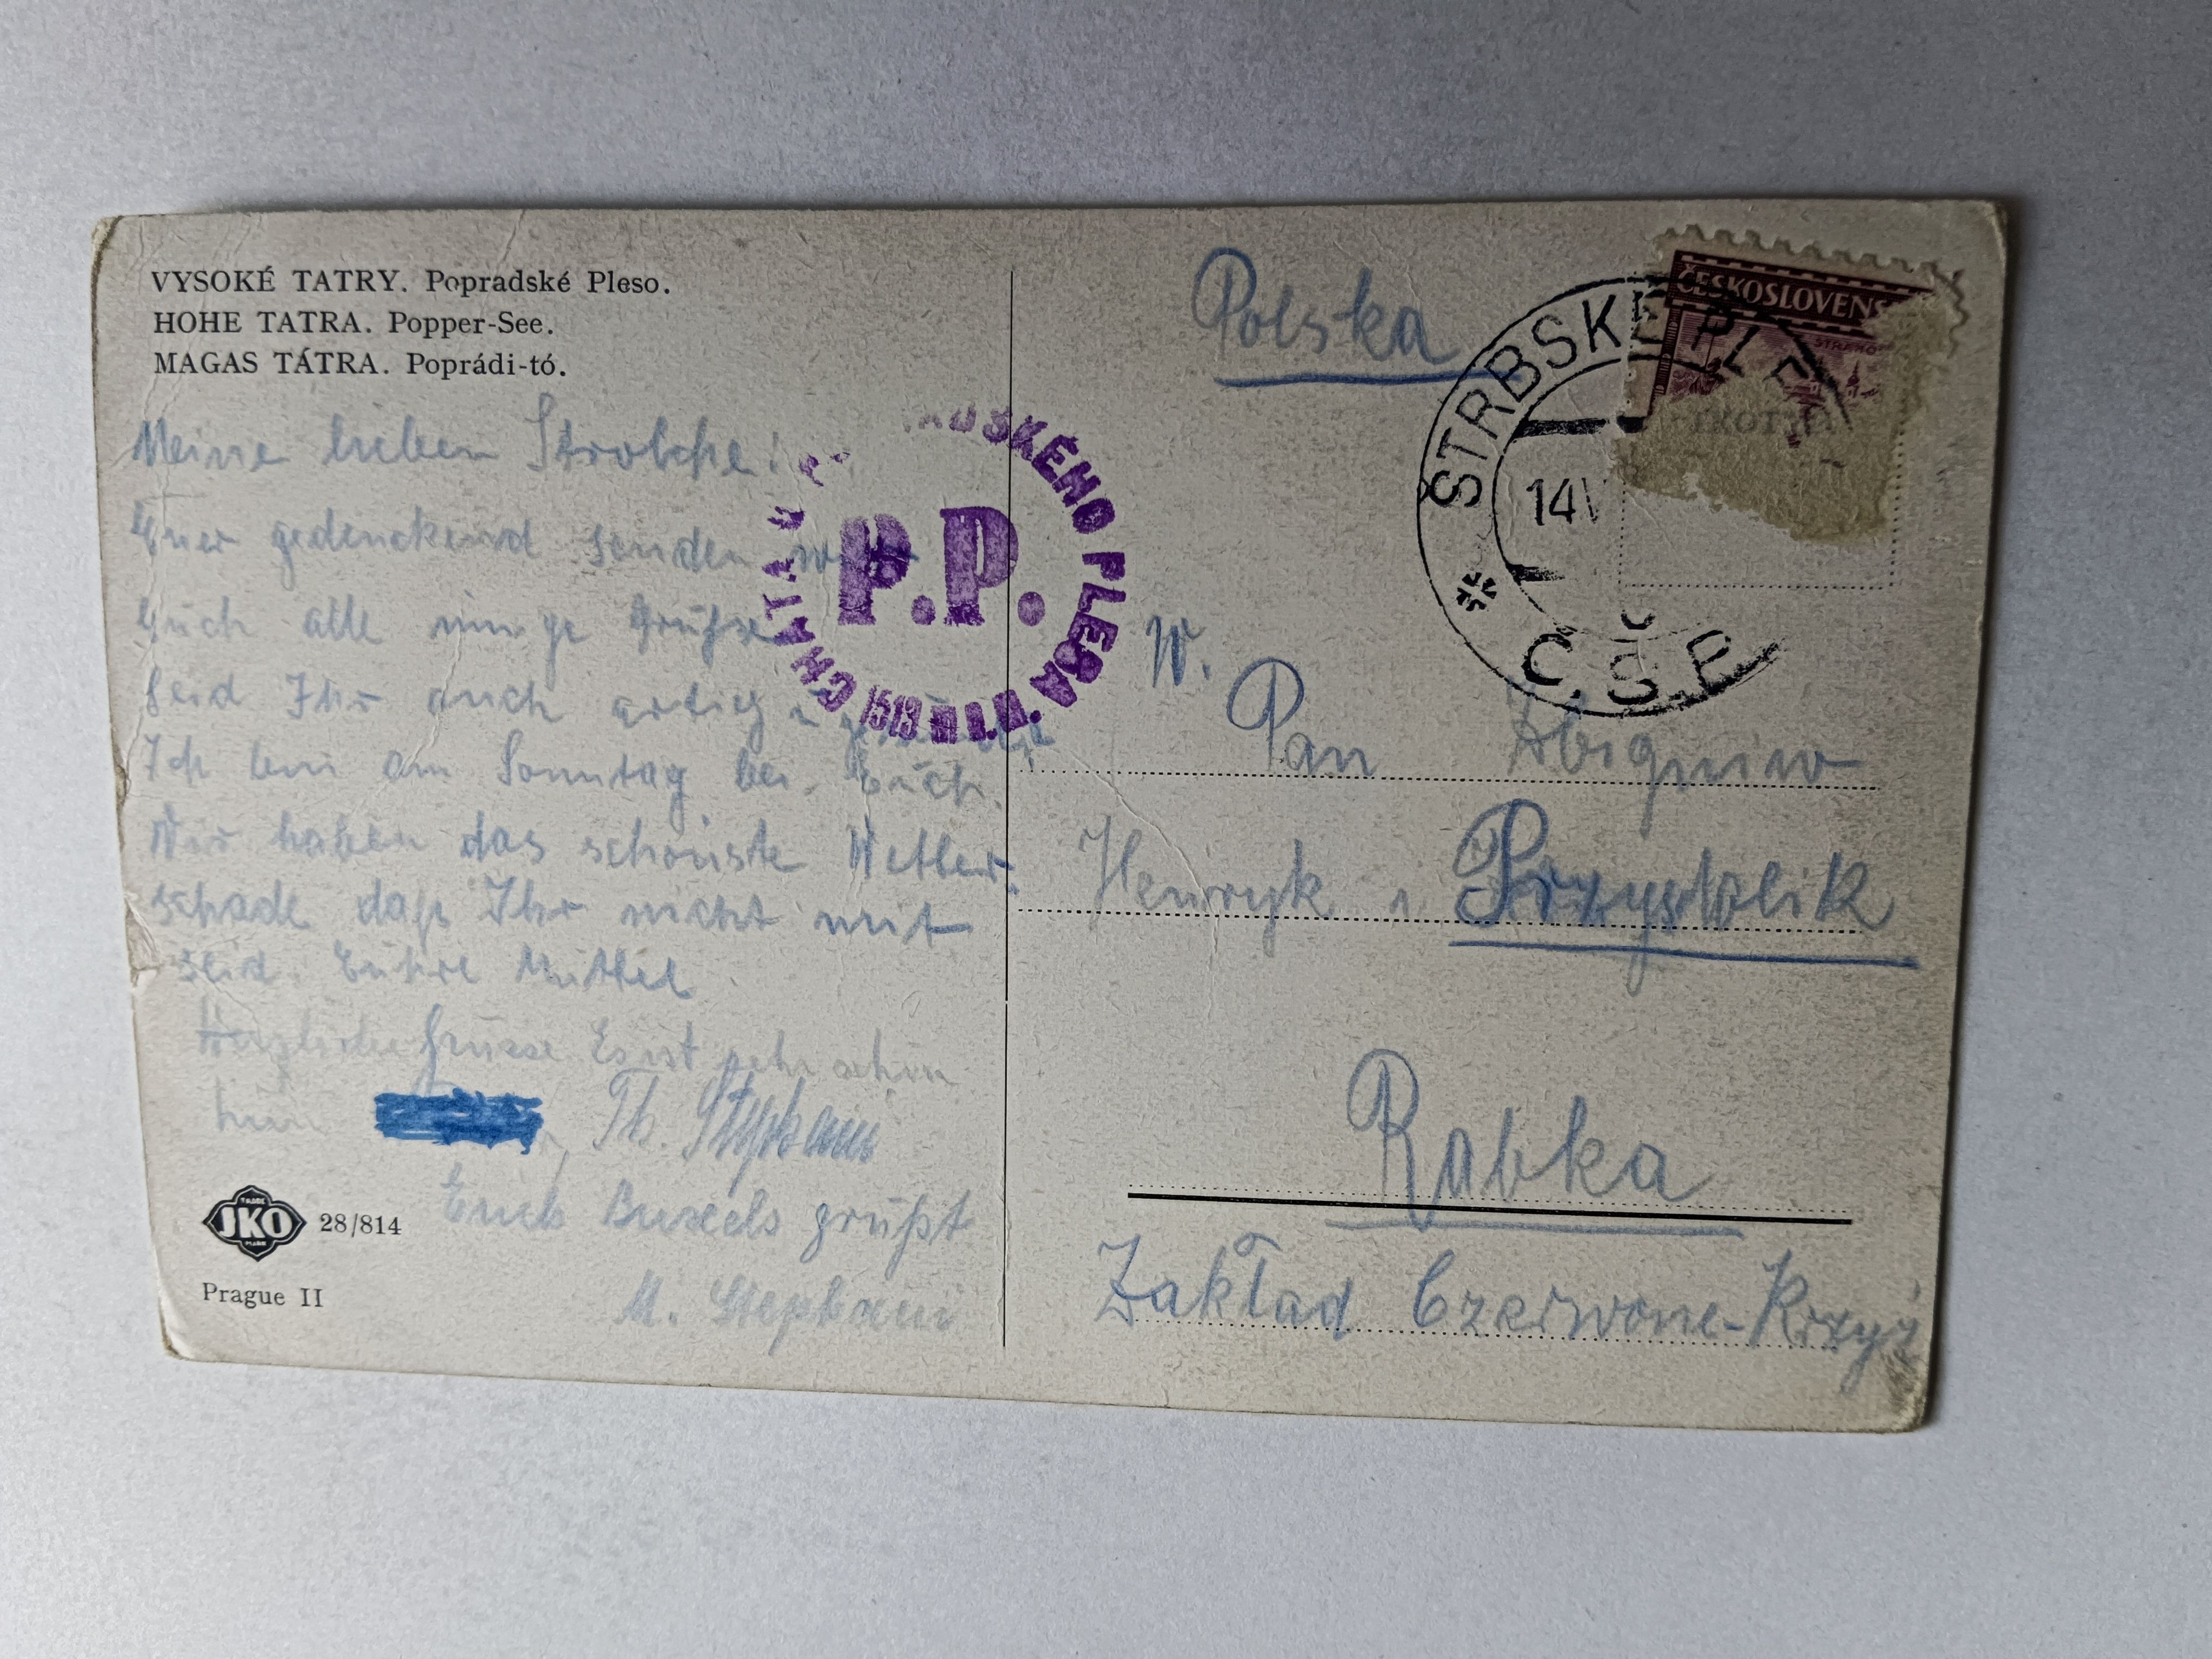 VYSOKÉ TATRY. Popradské Pleso.
HOHE TATRA. Popper-See.
MAGAS TÁTRA. Poprádi-tó.
Meine lieben Strolche!
Euer gedenckend senden wir
Euch alle innige Grüße
Seid Ihr auch artig
Ich bin am Sonntag bei Euch.
Wir haben das schönste Wetter.
schade daß Ihr nicht mit
seid. Euhre Muttel
Herzliche Grüsse Es ist sehr schön
hier
Th. Stephani
Erich grüßt
M. Stephani
JKO 28/814
Prague II
CHATA U POPRADSKÉHO PLESA
1513 m
P.P.
Polska
ČESKOSLOVENS
ŠTRBSKÉ PLE
14 V
Č.S.R
W.
Pan Zbigniew
Henryk i Przystolik
Rabka
Zakład Czerwone-Krzyż